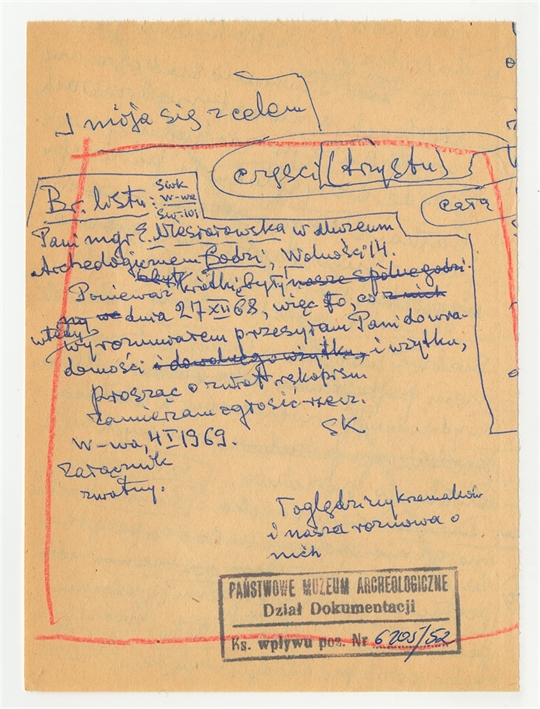 i mija się z celem
części (drystu)
cała
Br. listu: SWK
W-wa
Pani mgr E. Nesterowska w Muzeum
Archeologicznem Łodzi, Wolności 14.
Ponieważ zbyt krótki były nasze spólne godzi
ny we dnia 27 XII 68, więc to, co z nich
wtedy
wyrozumiałem przesyłam Pani do wia-
domości i dowolnego użytku, i użytku,
prosząc o zwrot rękopism
zamierzam zgłosić rzecz.
SK
W-wa, 4 I 1969.
Załącznik
zwrotny.
i nasza rozmowa o
nich
PAŃSTWOWE MUZEUM ARCHEOLOGICZNE
Dział Dokumentacji
Ks. wpływu poz. Nr 6205/52